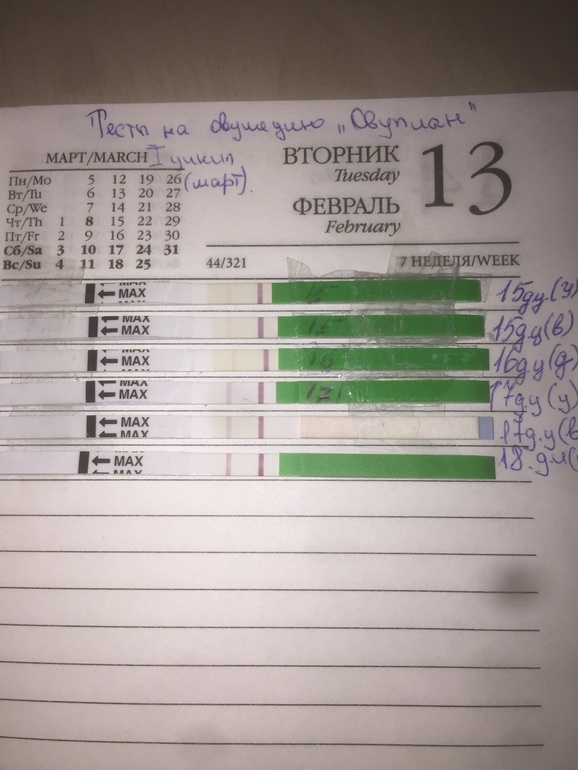 Тесты на овуляцию „Овуплан"
I цикл
(март).
МАРТ/MARCH
Пн/Mo 5 12 19 26
Вт/Tu 6 13 20 27
Ср/We 7 14 21 28
Чт/Th 1 8 15 22 29
Пт/Fr 2 9 16 23 30
Сб/Sa 3 10 17 24 31
Вс/Su 4 11 18 25
ВТОРНИК
Tuesday
ФЕВРАЛЬ
February
13
44/321
7 НЕДЕЛЯ/WEEK
MAX 15 15дц(у)
MAX 15 15дц(в)
MAX 16 16дц(д)
MAX 17 17дц(у)
MAX 17д.ц(в
MAX 18.дц(